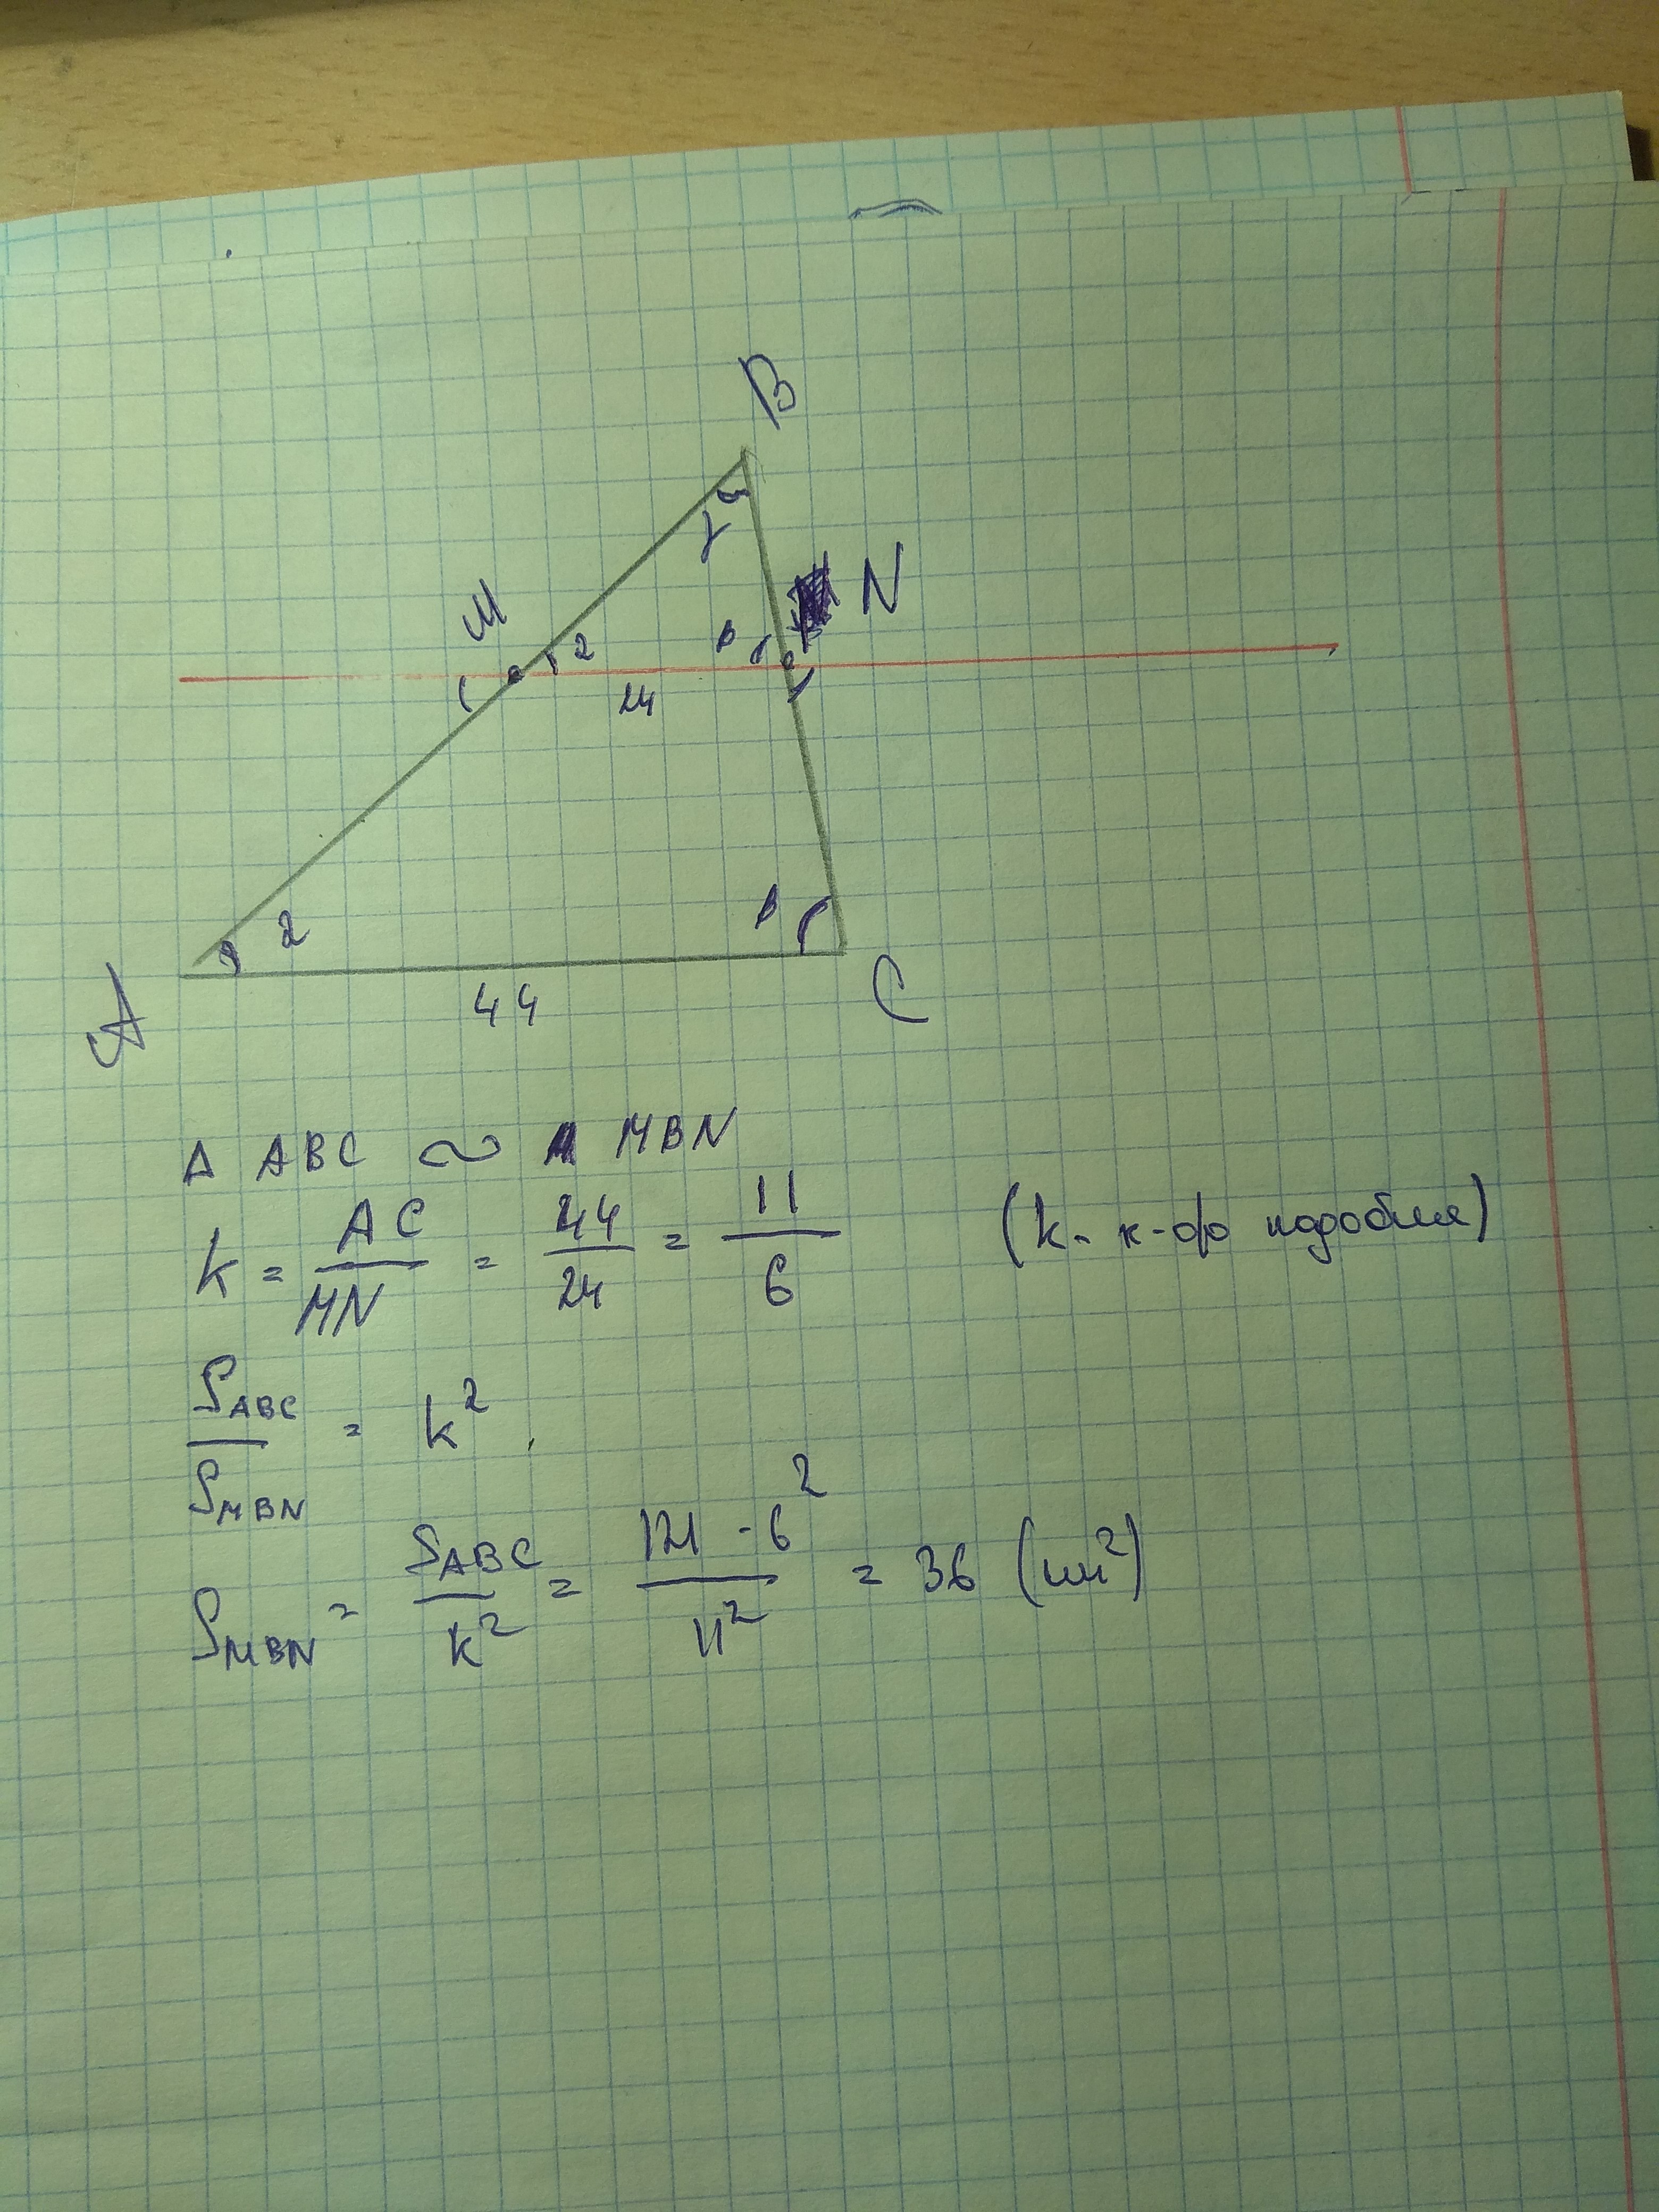 B
M
N
α
β
γ
24
α
β
A
44
C
Δ ABC ∾ MBN
k = AC/MN = 44/24 = 11/6 (k - к-фф подобия)
S_ABC/S_MBN = k²
S_MBN = S_ABC/k² = 121 · 6²/11² = 36 (см²)